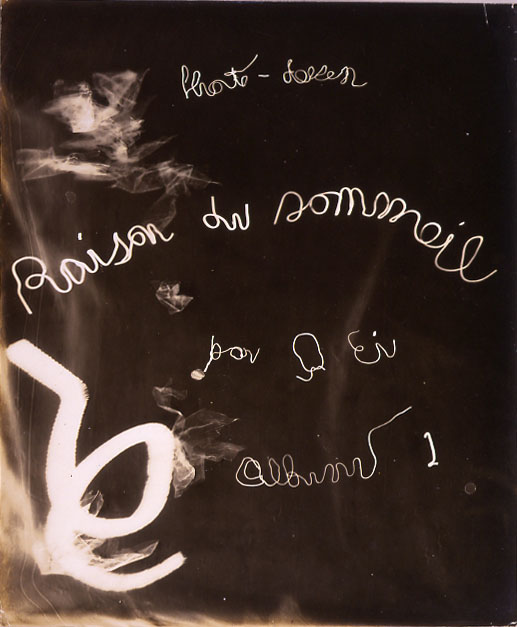 Photo-dessin
Raison du sommeil
par Q Ei
Album 1